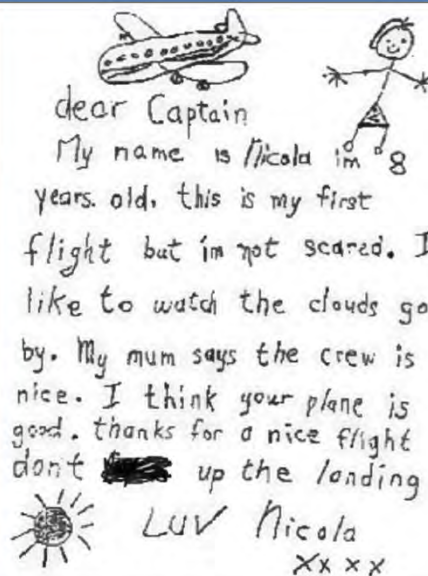 dear Captain
My name is Nicola im 8
years. old, this is my first
flight but im not scared. I
like to watch the clouds go
by. My mum says the crew is
nice. I think your plane is
good. thanks for a nice flight
don't up the landing
LUV Nicola
xxxx